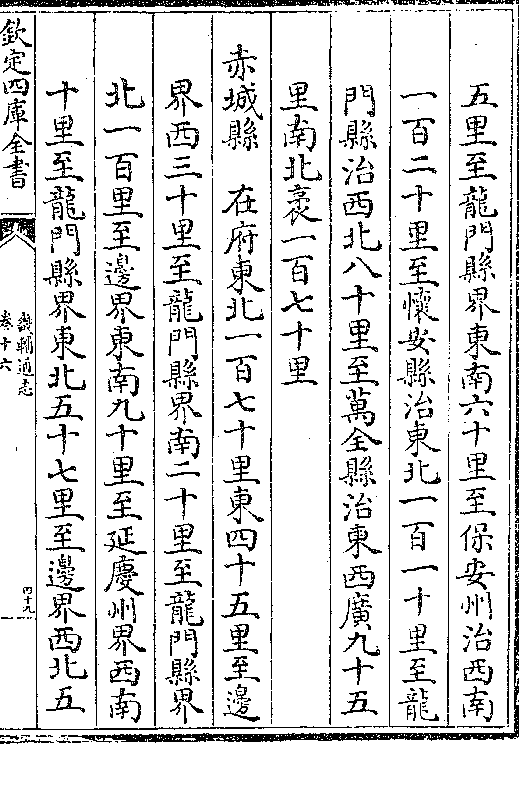 五里至龍門縣界東南六十里至保安州治西南
一百二十里至懷安縣治東北一百一十里至龍
門縣治西北八十里至萬全縣治東西廣九十五
里南北袤一百七十里
赤城縣　在府東北一百七十里東四十五里至邊
界西三十里至龍門縣界南二十里至龍門縣界
北一百里至邊界東南九十里至延慶州界西南
十里至龍門縣界東北五十七里至邊界西北五
欽定四庫全書
畿輔通志
卷十六
四十九